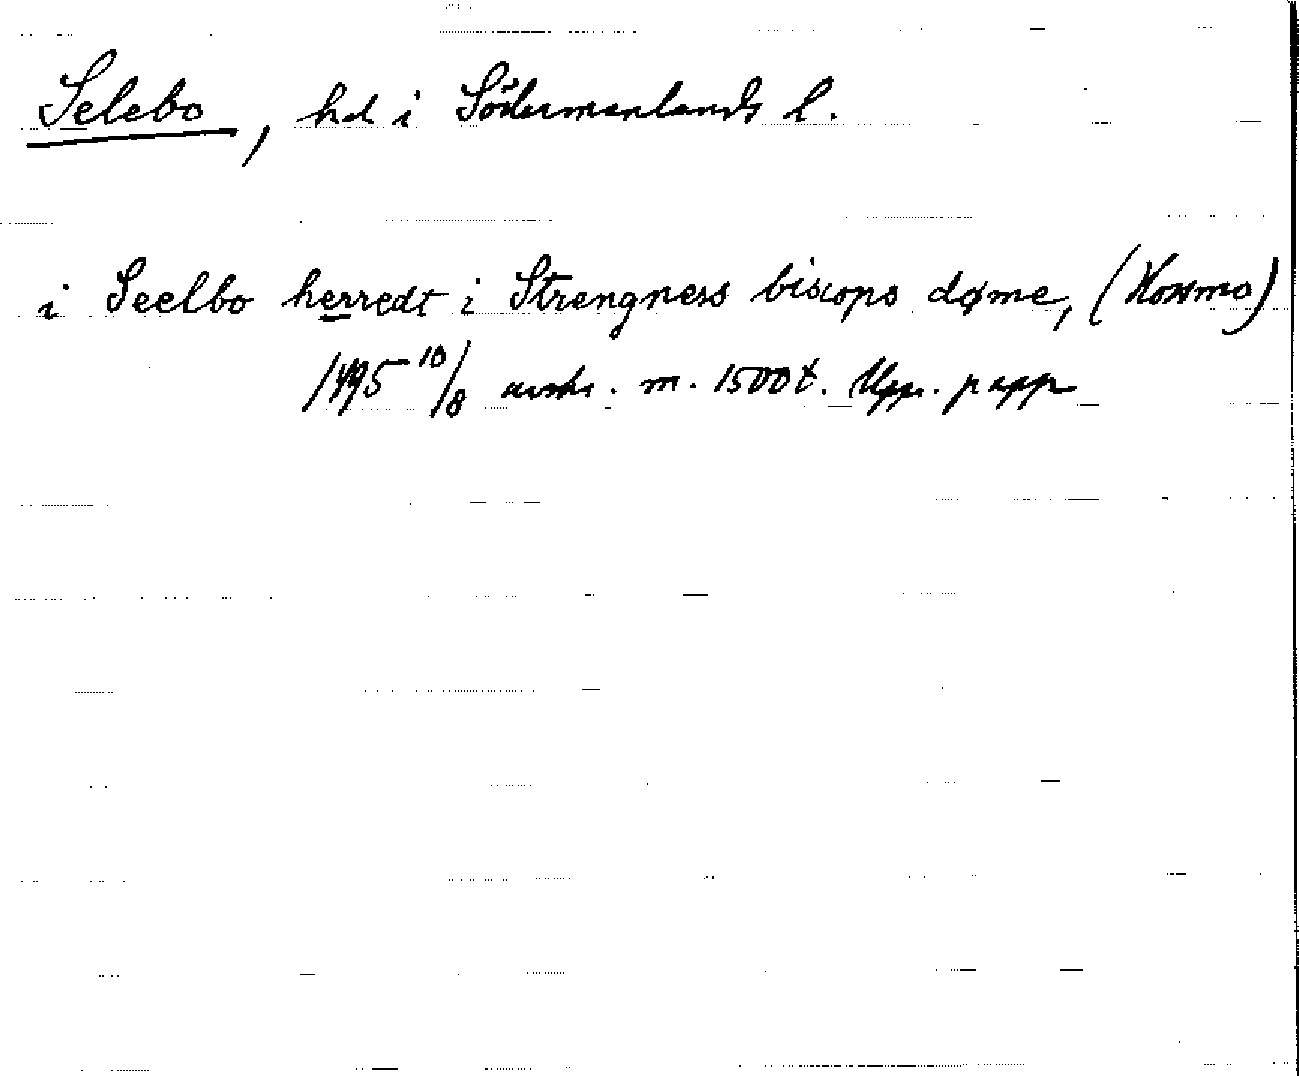 Selebo, hd i Södermanlands l.
i Seelbo herredt i Strengness biscops døme, (Kosmo)
1495 10/8 avskr. m. 1500 t. Upps. papp